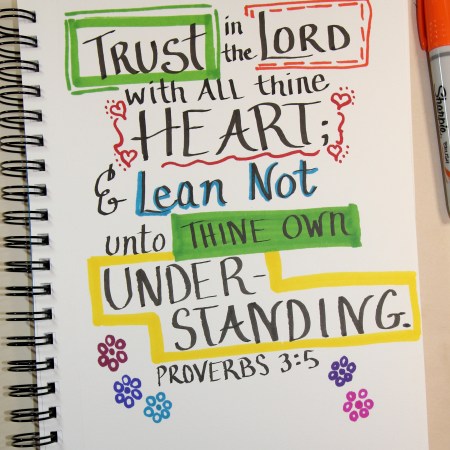 TRUST in the LORD
with ALL thine
HEART;
& Lean Not
unto THINE OWN
UNDER-
STANDING.
PROVERBS 3:5
Sharpie